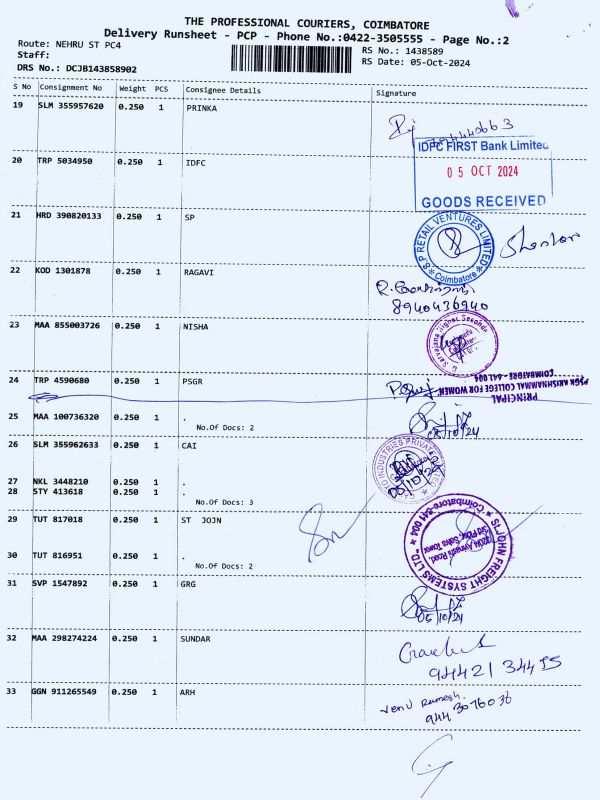 THE PROFESSIONAL COURIERS, COIMBATORE
Delivery Runsheet - PCP - Phone No.:0422-3505555 - Page No.:2
Route: NEHRU ST PC4
RS No.: 1438589
Staff:
RS Date: 05-Oct-2024
DRS No.: DCJB143858902
S No Consignment No Weight PCS Consignee Details Signature
19 SLM 355957620 0.250 1 PRINKA
IDFC FIRST Bank Limited
20 TRP 5034950 0.250 1 IDFC
05 OCT 2024
GOODS RECEIVED
21 HRD 390820133 0.250 1 SP
S.P RETAIL VENTURES LIMITED
* Coimbatore *
22 KOD 1301878 0.250 1 RAGAVI
8940436940
23 MAA 855003726 0.250 1 NISHA
24 TRP 4590680 0.250 1 PSGR
PRINCIPAL
PSGR KRISHNAMMAL COLLEGE FOR WOMEN,
COIMBATORE - 641 004
25 MAA 100736320 0.250 1 .
No.Of Docs: 2
05/10/24
26 SLM 355962633 0.250 1 CAI
27 NKL 3448210 0.250 1 .
28 STY 413618 0.250 1 .
No.Of Docs: 3
29 TUT 817018 0.250 1 ST JOJN
ST.JOHN FREIGHT SYSTEMS LTD
* Coimbatore-641 004 *
30 TUT 816951 0.250 1 .
No.Of Docs: 2
31 SVP 1547892 0.250 1 GRG
05/10/24
32 MAA 298274224 0.250 1 SUNDAR
94421 34455
33 GGN 911265549 0.250 1 ARH
Venu Ramesh.
944 3076036